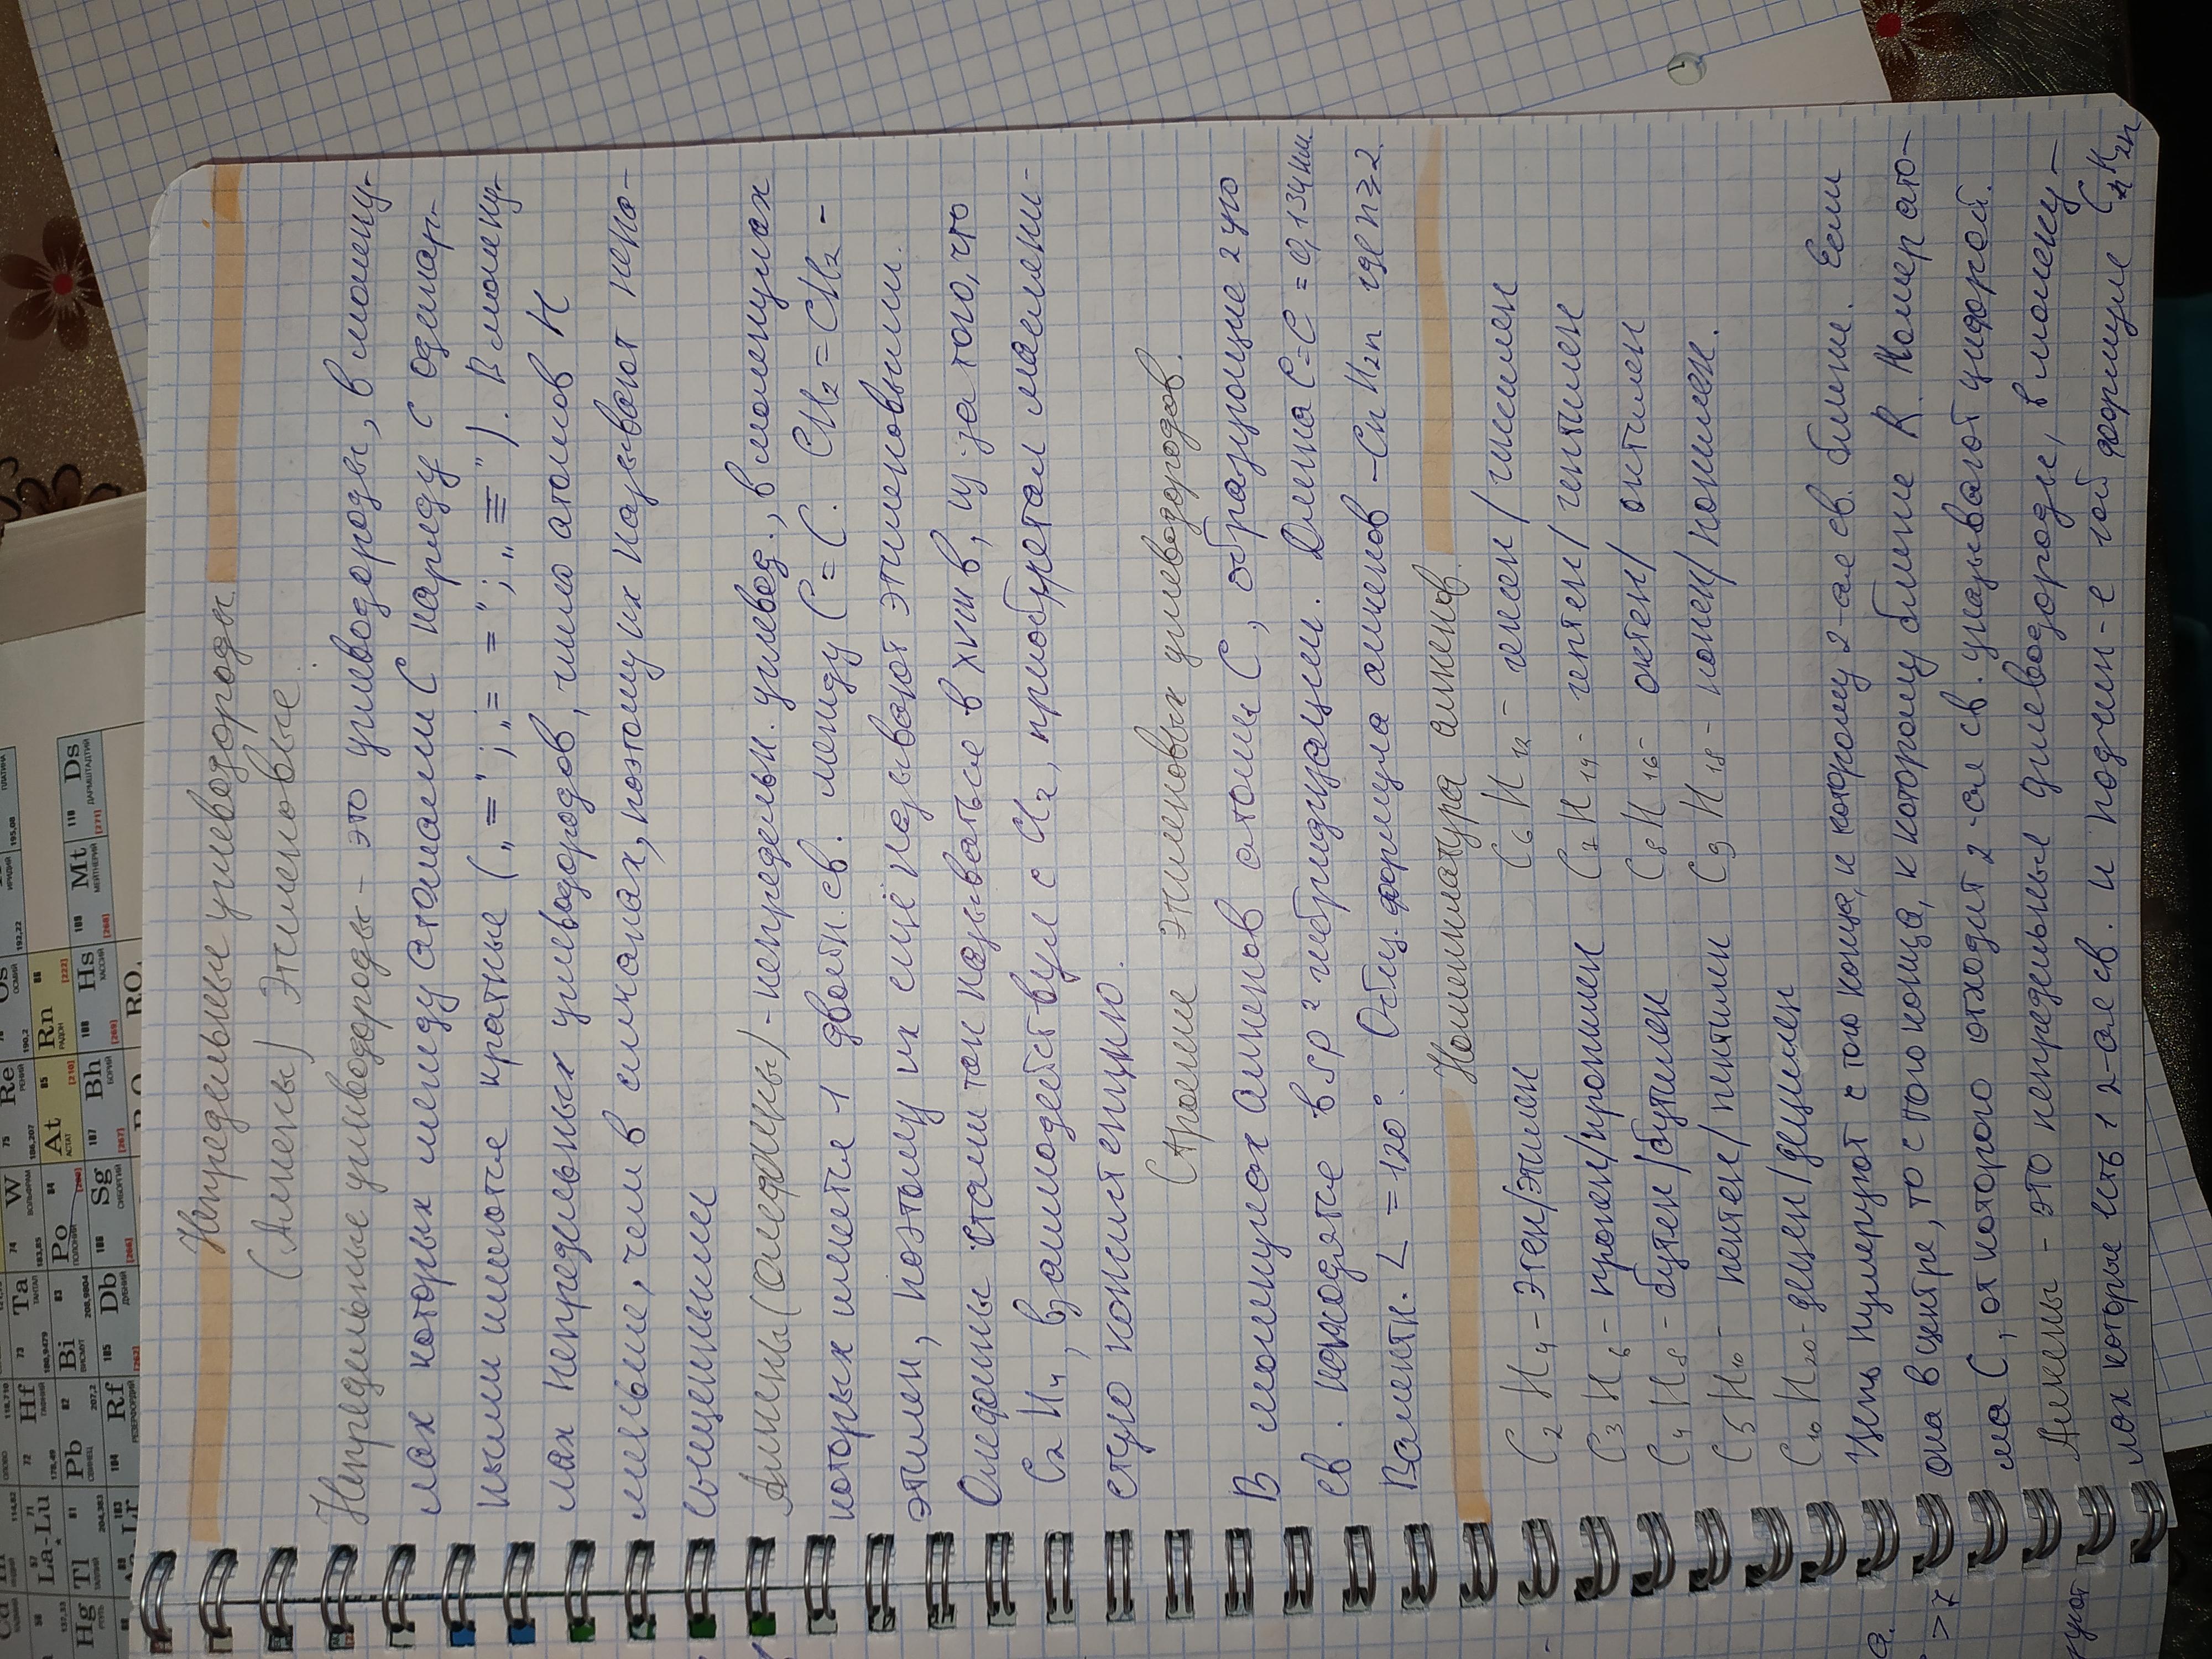 Непредельные углеводороды.
(Алкены) Этиленовые.
Непредельные углеводороды - это углеводороды, в молеку-
лах которых между атомами С наряду с одинар-
ными имеются кратные („="; „= ="; „≡"). В молеку-
лах непредельных углеводородов, число атомов Н
меньше, чем в алканах, поэтому их называют нена-
сыщенными
Алкены (олефины) - непредельн. углевод., в молекулах
которых имеется 1 двойн. св. между С=С. CH₂=CH₂ -
этилен, поэтому их ещё называют этиленовыми.
Олефины стали так называться в XVIII в, из-за того, что
C₂H₄, взаимодействуя с Cl₂, приобретал маслени-
стую консистенцию.
Строение этиленовых углеводородов.
В молекулах алкенов атомы С, образующие 2 ую
св. находятся в sp² гибридизации. Длина С=С = 0,134нм.
Валентн. ∠ = 120°. Общ. формула алкенов - CnH2n где n≥2.
Номенклатура алкенов.
C₂H₄ - этен/этилен C₆H₁₂ - гексен/гексилен
C₃H₆ - пропен/пропилен C₇H₁₄ - гептен/гептилен
C₄H₈ - бутен/бутилен C₈H₁₆ - октен/октилен
C₅H₁₀ - пентен/пентилен C₉H₁₈ - нонен/нонилен.
C₁₀H₂₀ - децен/децилен
Цепь нумеруют с того конца, к которому 2-ая св. ближе. Если
она в центре, то с того конца, к которому ближе R. Номер ато-
ма С, от которого отходит 2-ая св. указывают цифрой.
Алкены - это непредельные углеводороды, в молеку-
лах которых есть 1 2-ая св. и подчин-е общ формуле CnH2n